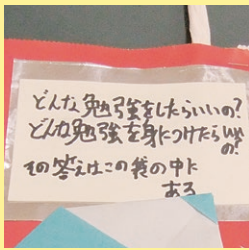 どんな勉強をしたらいいの?
どんな勉強を身につけたらいいの?
その答えはこの袋の中に
ある